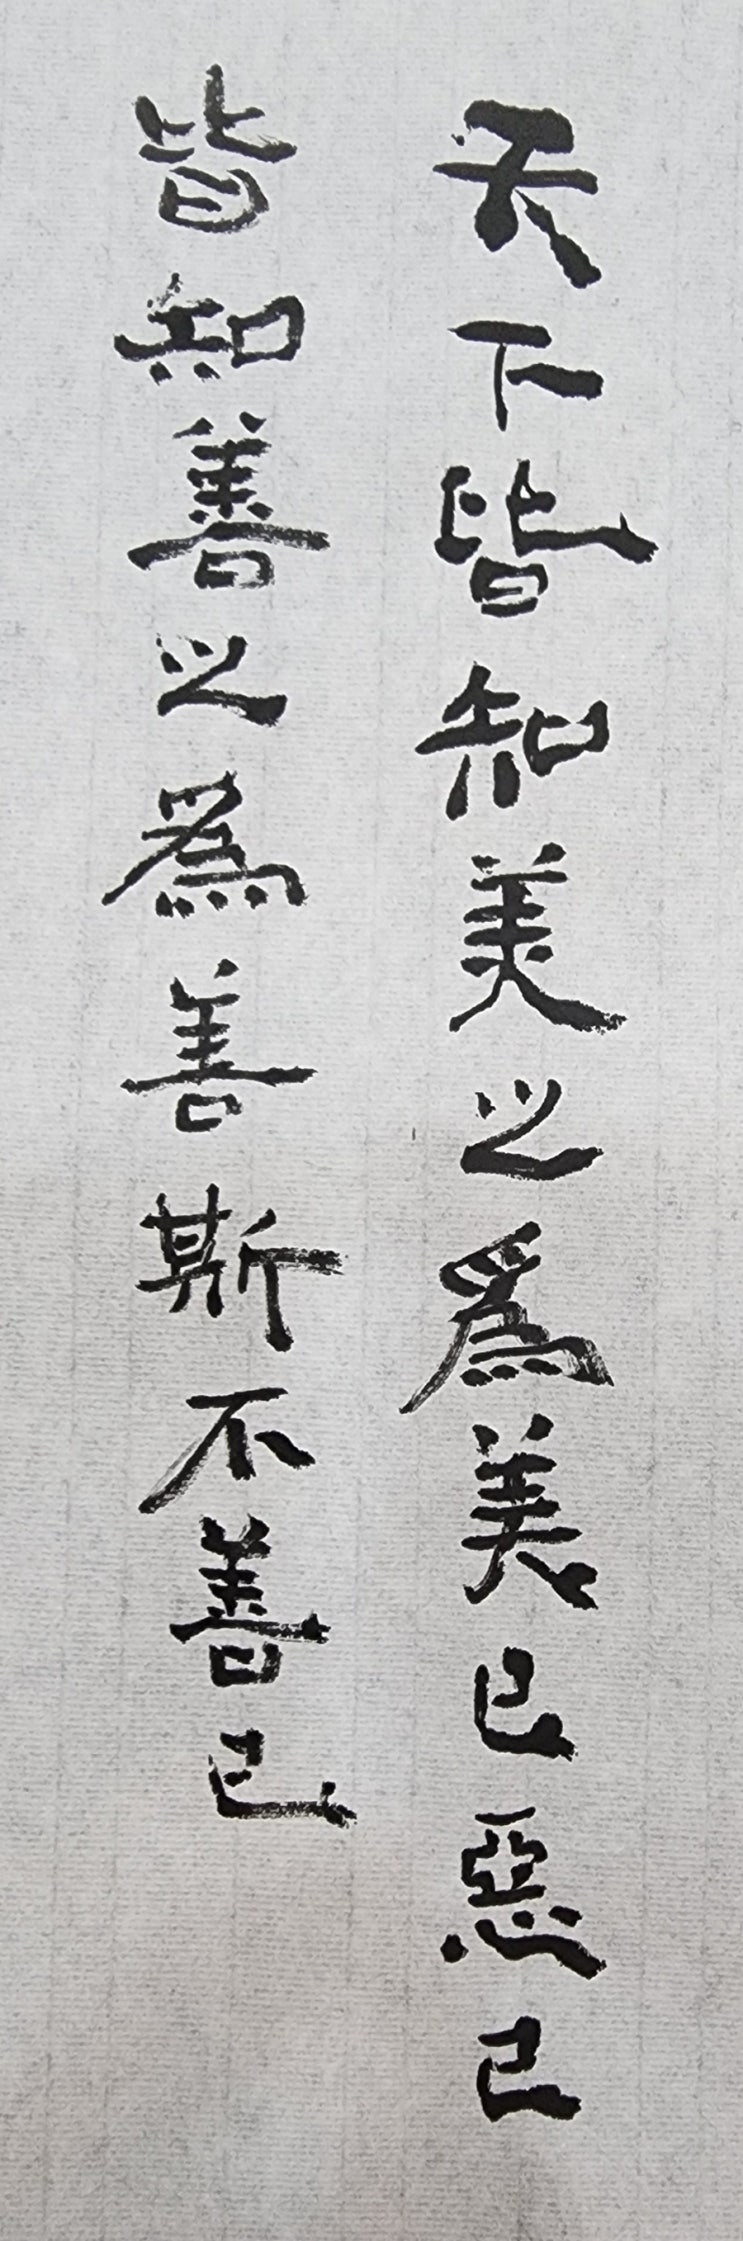 天下皆知美之為美已惡已
皆知善之為善斯不善已